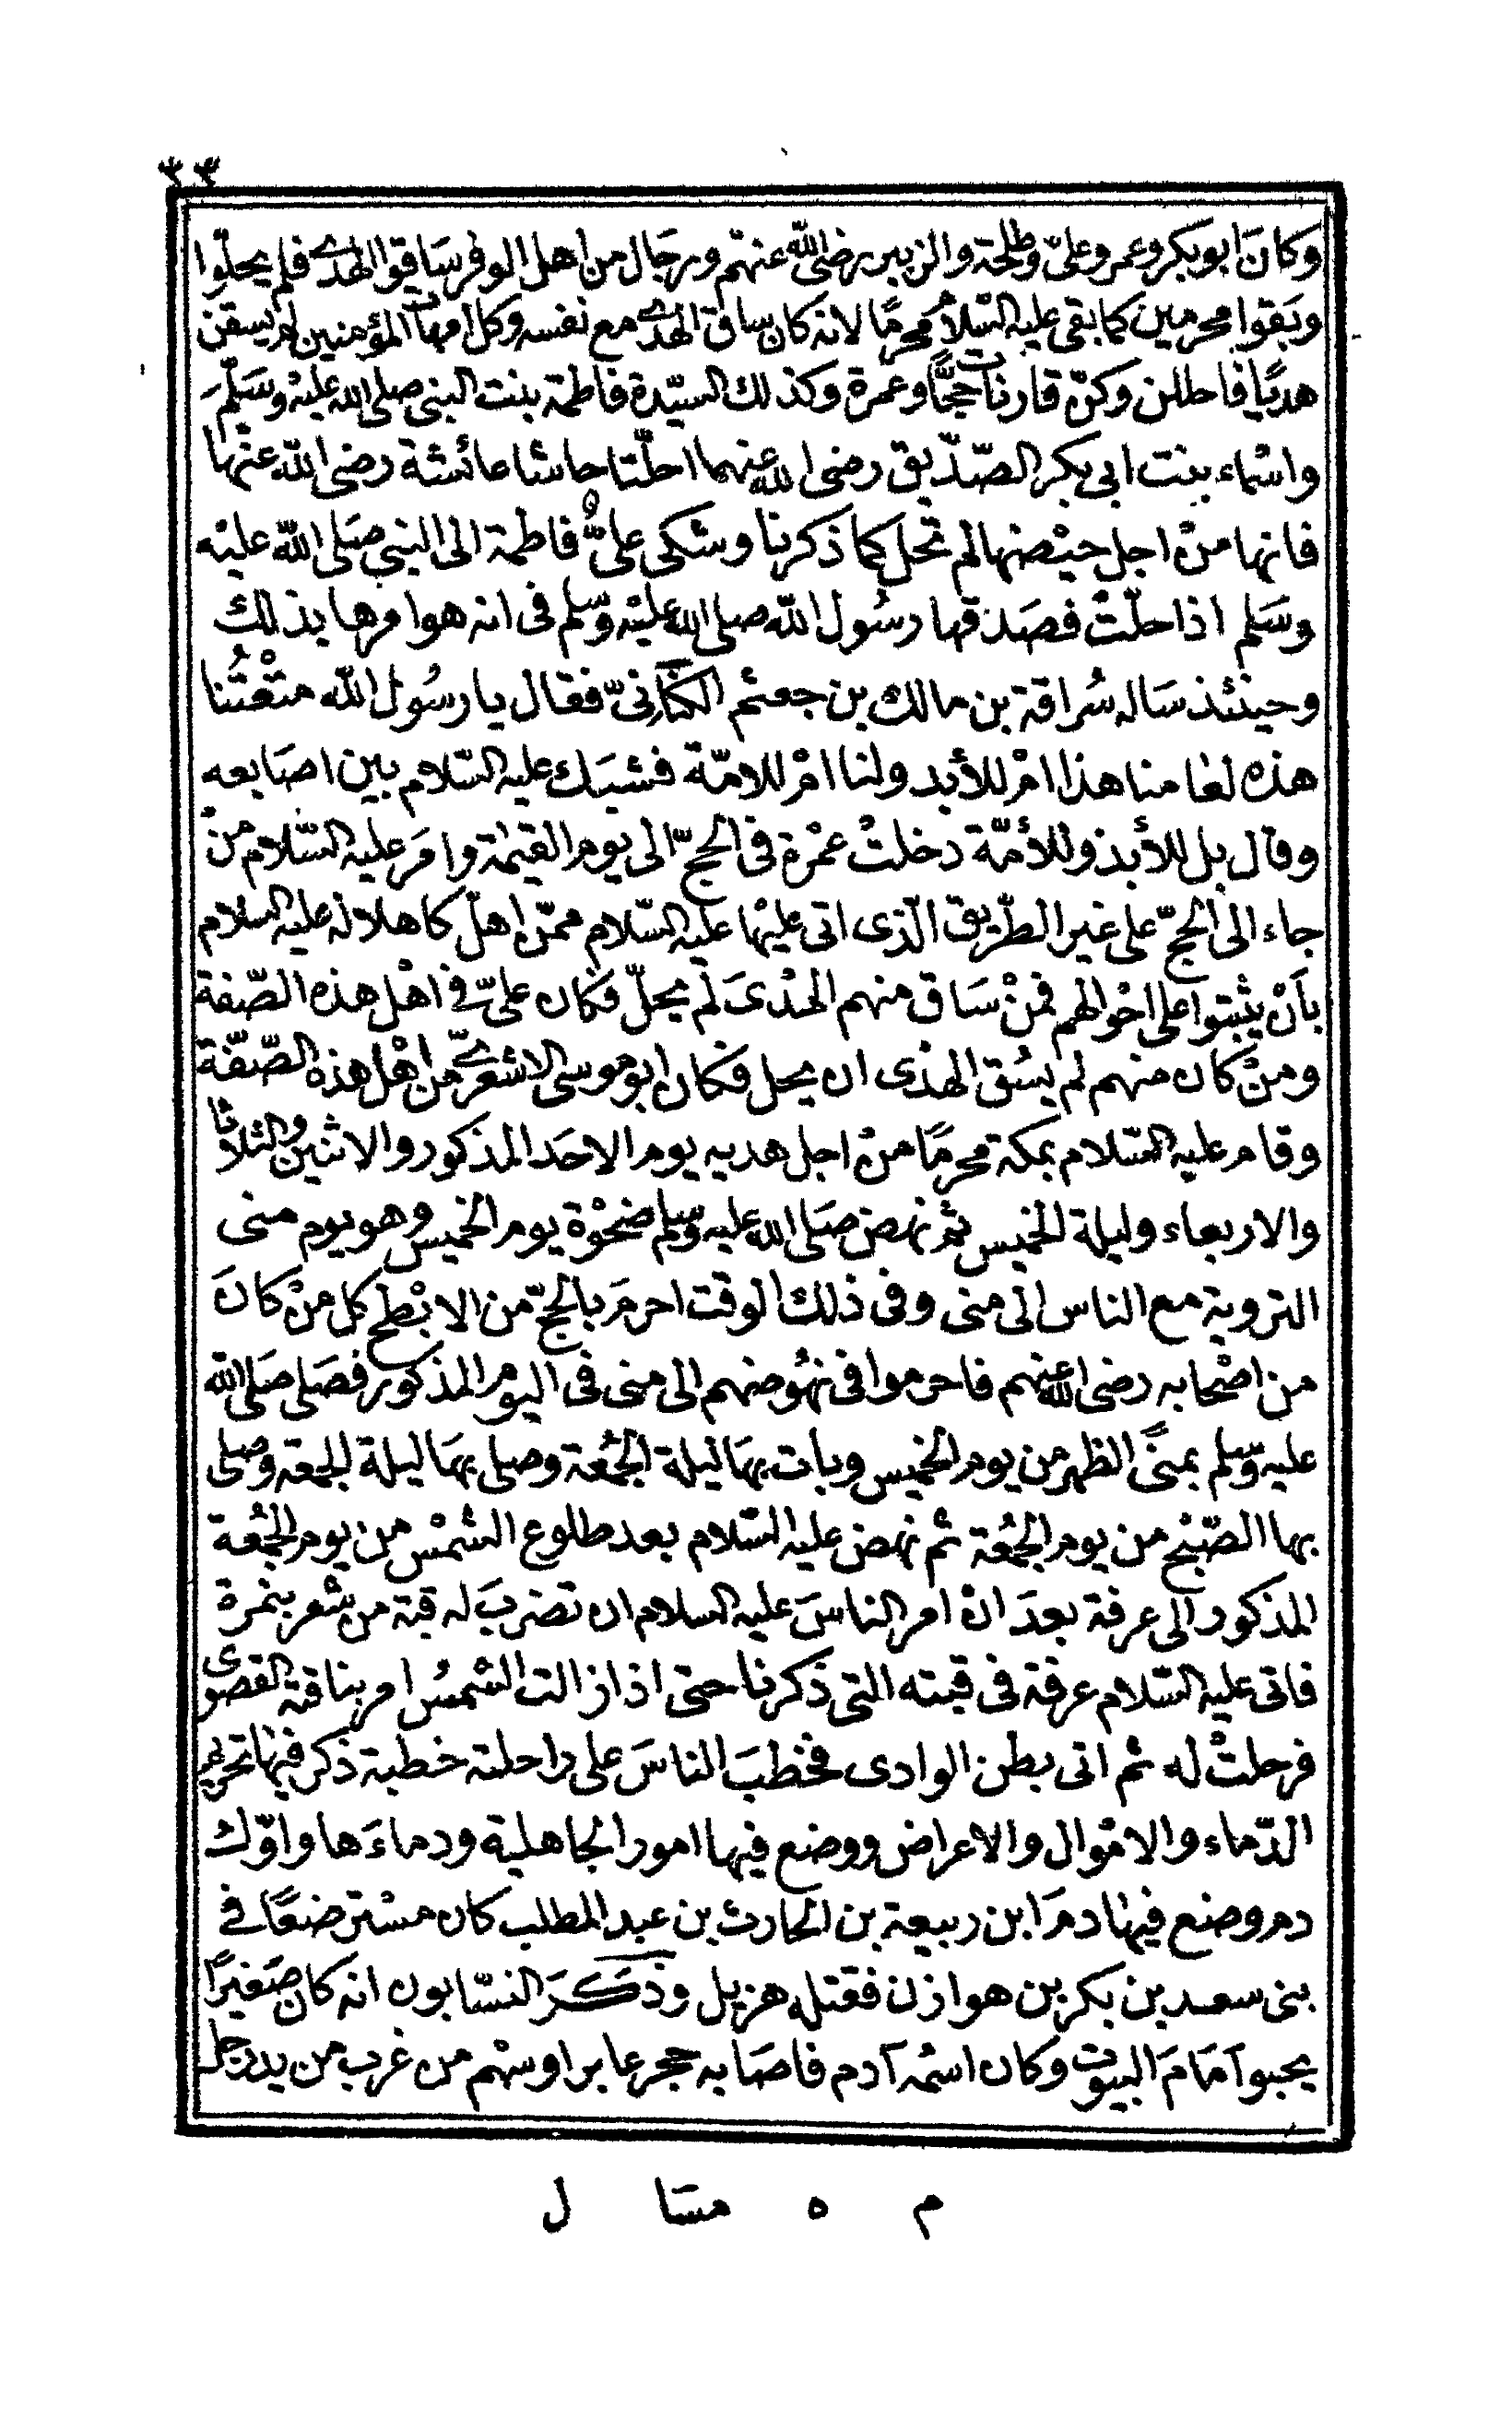 ٣٣
وكانَ ابو بكر وعمر وعلىّ وطلحة والزبير رضى الله عنهم ورجال من اهل الوفر ساقوا الهدى فلم يحلّوا
وبَقوا محرمين كما بقى عليه السّلام محرمًا لانه كان ساق الهدى مع نفسه وكل امهات المؤمنين لم يسقن
هديًا فاحللن وكنّ قارنات حجًّا وعمرة وكذلك السيّدة فاطمة بنت النبى صلى الله عليه وسَلّمَ
واسْماء بنت ابى بكر الصّدّيق رضى الله عنهما احلّتا حاشا عائشة رضى الله عنها
فانها منْ اجل حيْضها لم تحل كما ذكرنا وشكى علىٌّ فاطمة الى النبى صَلى الله عليْه
وسَلم اذا حلّتْ فصَدقها رسُول الله صلى الله عليْه وسّلم فى انه هو امرها بذلك
وحينئذ سَاله سُراقة بن مالك بن جعثم الكنَانىّ فقال يا رسُول الله متْعتُنا
هذه لعامنا هذا امْ للأبد ولنا امْ للامّة فشبَك عليه السّلام بين اصَابعه
وقال بل للأبد وللأمّة دخلتْ عمْرة فى الحجّ الى يوم القيٰمة وامَر عليه السّلام منْ
جاء الى الحجّ على غير الطّريق الّذى اتى عليْها عليه السّلام ممّن اهلّ كاهلاله عليه السلام
بأنْ يثبتوا على احْوالهم فمنْ سَاق منهم الهْدىَ لم يحلّ فكان علىّ فى اهْل هذه الصّفة
ومنْ كان منهم لم يسُق الهدى ان يحل فكان ابو موسى الاشعرىّ من اهْل هذه الصّفّة
وقام عليه السّلام بمكة محرمًا منْ اجل هديه يوم الاحَد المذكور والاثنين والثلاثا
والاربعاء وليلة الخميس ثم نهض صَلى الله عليه وسّلم ضحْوة يوم الخميس وهو يوم منى
التروية مع الناس الى منى وفى ذلك الوقت احرمَ بالحجّ من الابْطح كل منْ كانَ
من اصْحابه رضى الله عنهم فاحرموا فى نهُوضهم الى منى فى اليوم المذكور فصَلى صَلى الله
عليه وسّلم بمنىً الظهر من يوم الخميس وبات بهَا ليلة الجُمعة وصلى بهَا ليلة الجمعة وصلى
بها الصّبْح من يوم الجُمُعة ثم نهض عليه السّلام بعد طلوع الشمْس من يوم الجمُعة
المذكور الى عرفة بعدَ انْ امر الناسَ عليه السلام ان تضربَ له قبة من شعر بنمرة
فاتى عليه السّلام عرفة فى قبته التى ذكرنا حتى اذا زالت الشمسُ امر بناقته القصوى
فرحلتْ له ثم اتى بطن الوادى فخطبَ الناسَ على راحلته خطبة ذكر فيها تحريم
الدّماء والامْوال والاعراض ووضع فيها امور الجاهلية ودماءَها واوّل
دم وضع فيها دمَ ابن ربيعة بن الحارث بن عبد المطلب كان مسْترضعًا فى
بنى سعد بن بكر بن هوازن فقتله هزيل وذكَرَ النسّابون انه كان صَغيرًا
يحبوا امَامَ البيوت وكان اسْمه آدم فاصَابه حجر عابر او سهْم من غرب من يد رجل
م ه مسَا ل